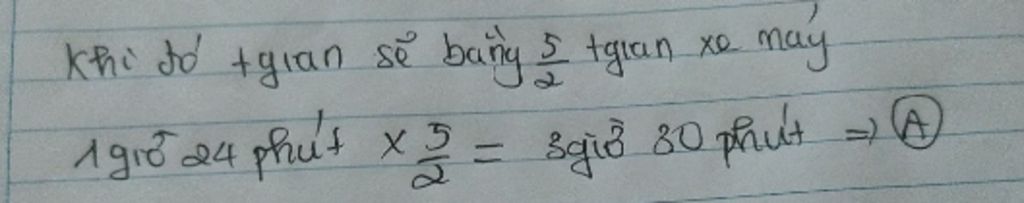 Khi đó tgian sẽ bằng 5/2 tgian xe máy
1 giờ 24 phút x 5/2 = 3 giờ 30 phút => A